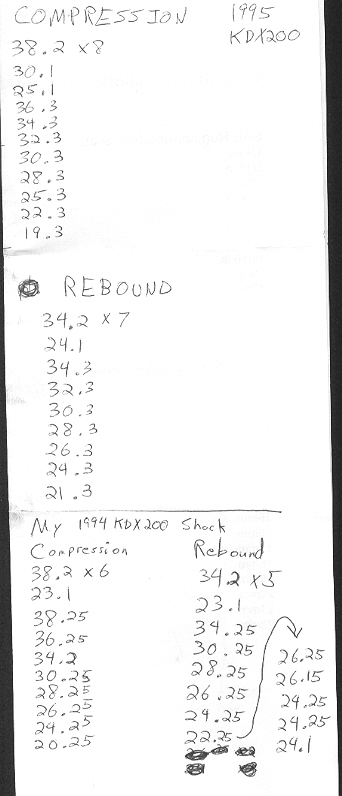 COMPRESSION
1995
KDX200
38.2 x8
30.1
25.1
36.3
34.3
32.3
30.3
28.3
25.3
22.3
19.3
REBOUND
34.2 x 7
24.1
34.3
32.3
30.3
28.3
26.3
24.3
21.3
My 1994 KDX200 Shock
Compression
38.2 x 6
23.1
38.25
36.25
34.2
30.25
28.25
26.25
24.25
20.25
Rebound
34.2 x 5
23.1
34.25
30.25
28.25
26.25
24.25
22.25
26.25
26.15
24.25
24.25
24.1